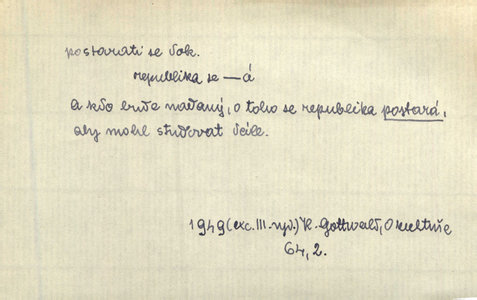 postarati se dok.
republika se —á
A kdo bude nadaný, o toho se republika postará,
aby mohl studovat dále.
1949 (exc. III. vyd.) K. Gottwald, O kultuře
64, 2.